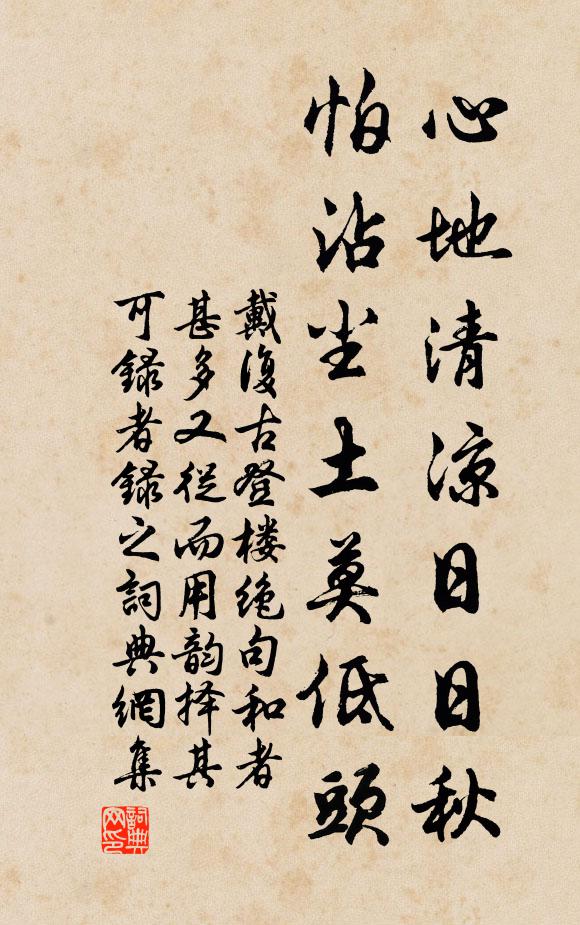 心地清凉日日秋
怕沾尘土莫低頭
戴復古登楼绝句和者
甚多又從而用韵择其
可録者録之詞典網集
詞典网印